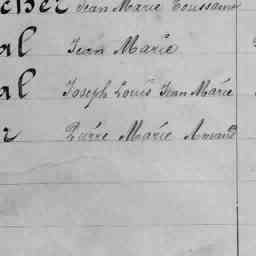 Jean Marie Toussaint
al Jean Marie
al Joseph Louis Jean Marie
r Pierre Marie Amand